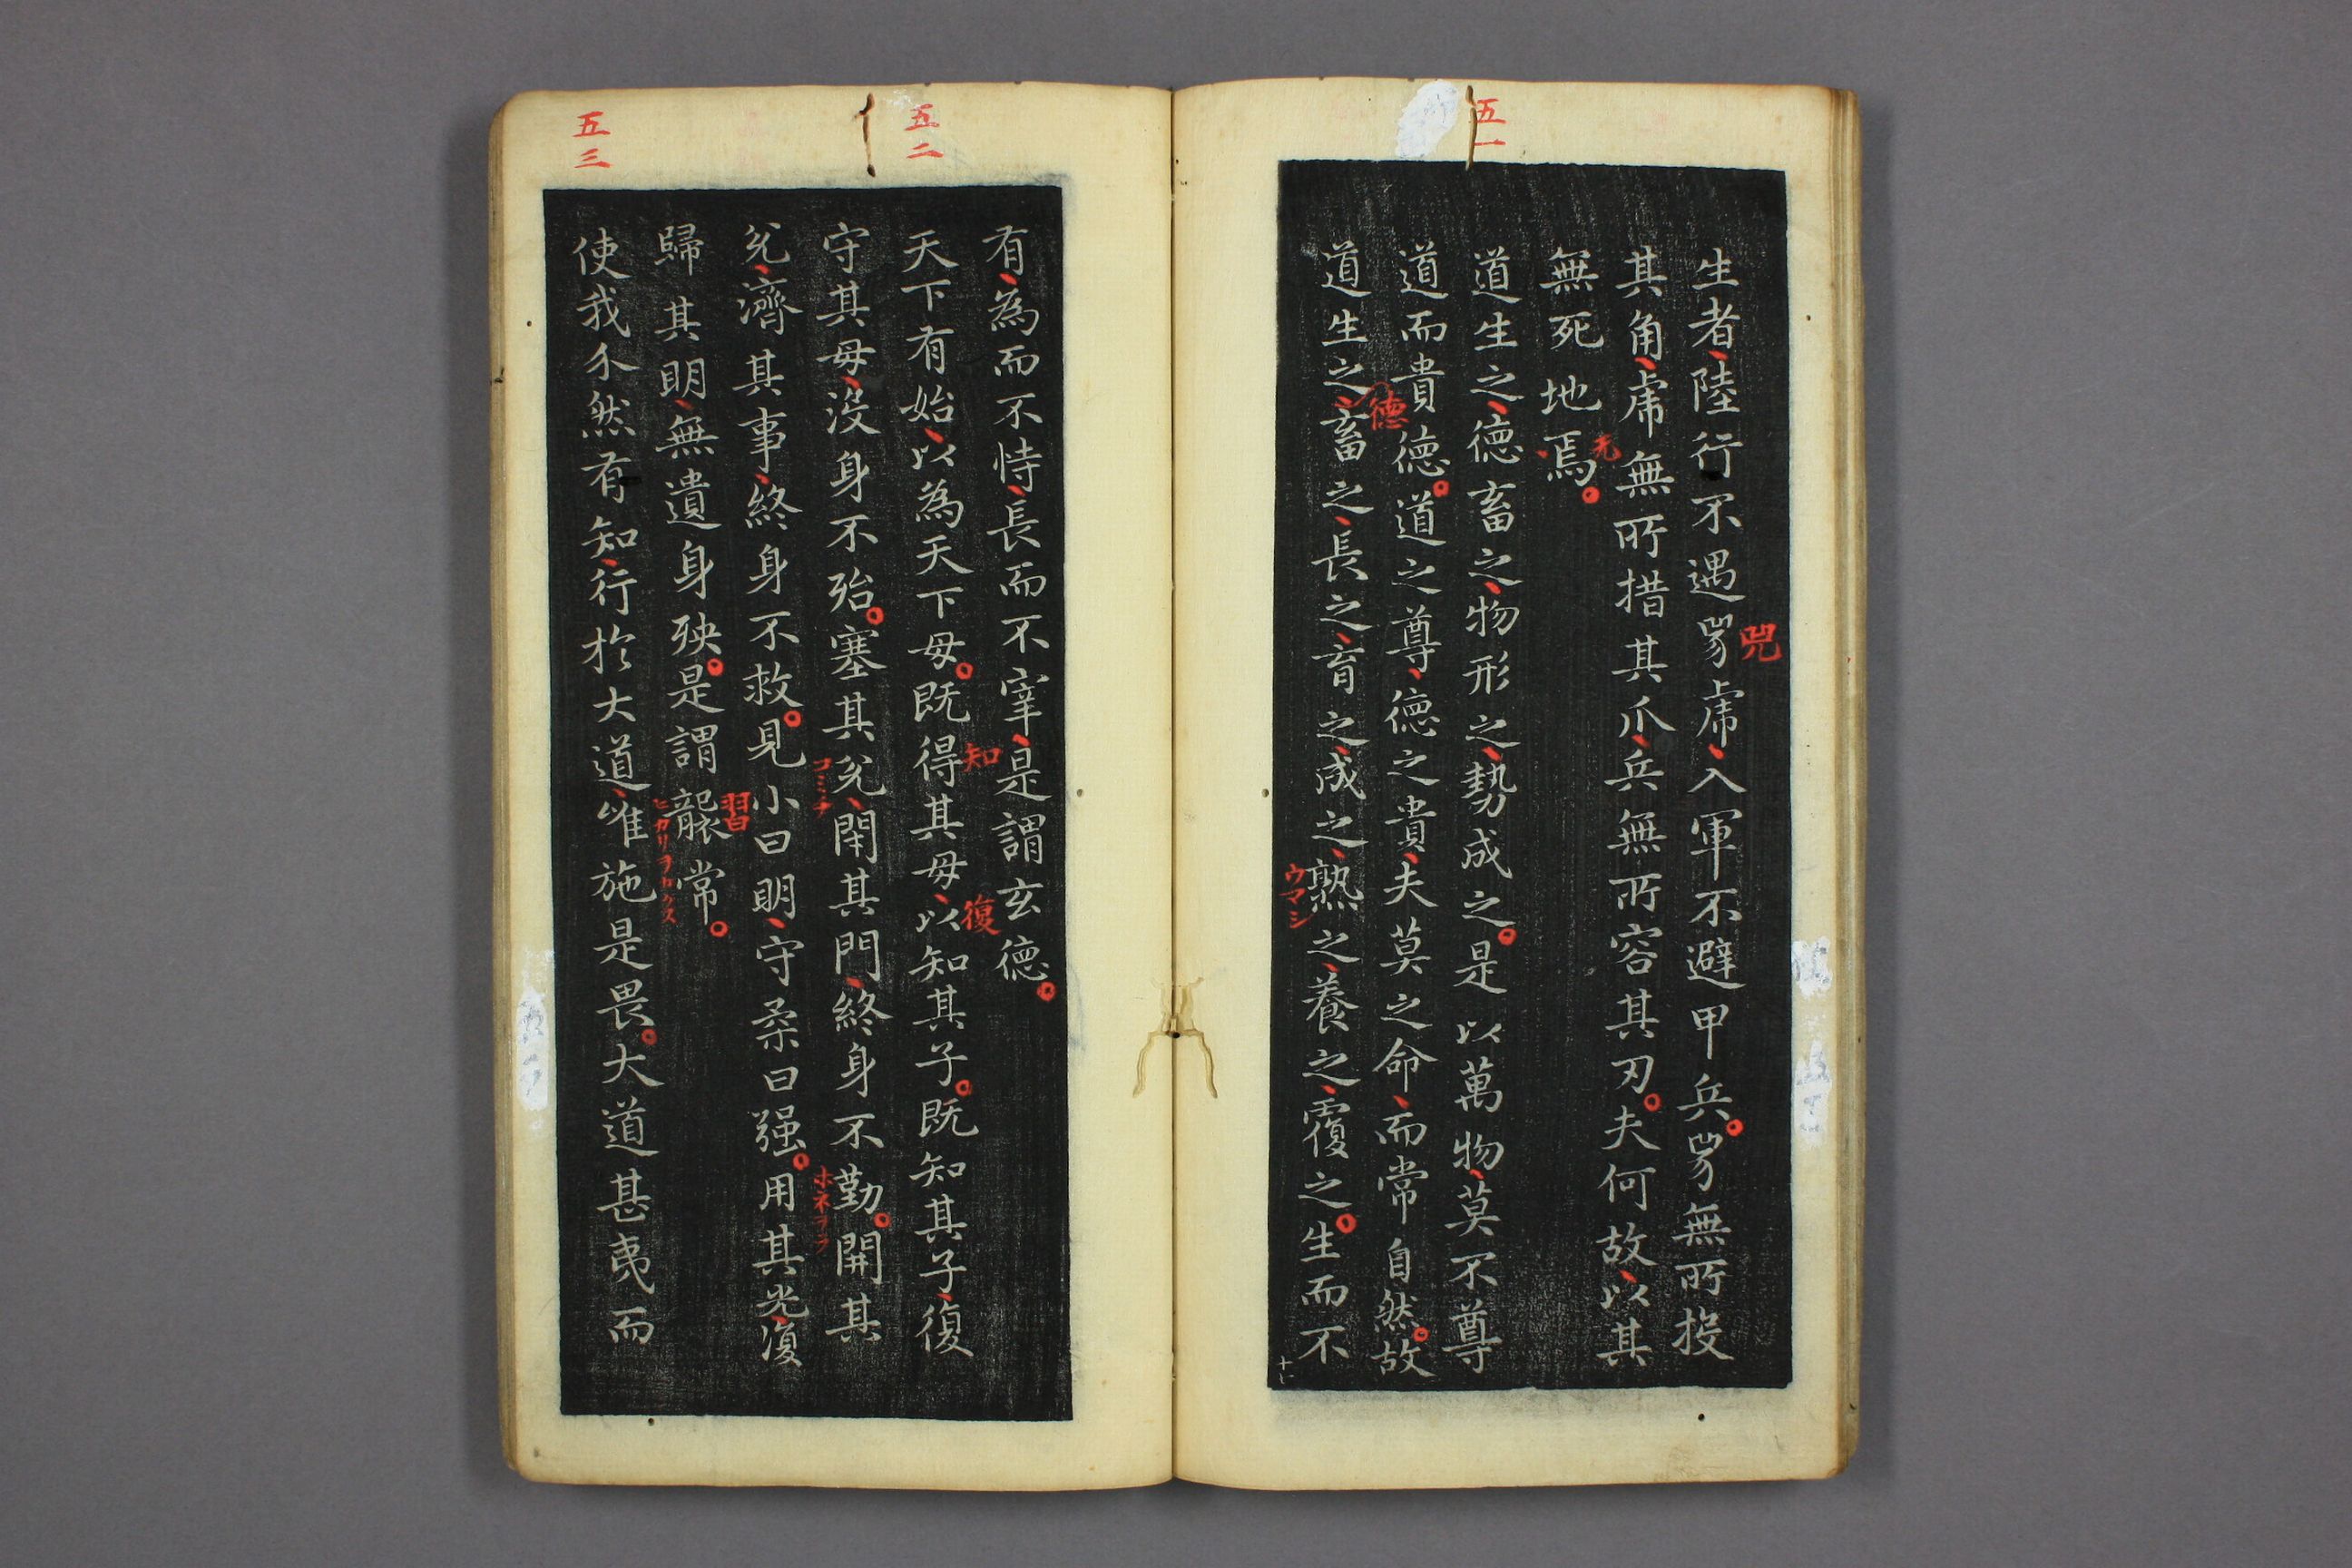 五一
生者陸行不遇兕虎入軍不避甲兵兕無所投
兕
其角虎無所措其爪兵無所容其刃夫何故以其
無死地焉
道生之德畜之物形之勢成之是以萬物莫不尊
道而貴德道之尊德之貴夫莫之命而常自然故
德
道生之畜之長之育之成之熟之養之覆之生而不
ウマシ
五二
有為而不恃長而不宰是謂玄德
天下有始以為天下母既得其母以知其子既知其子復
知
復
守其母沒身不殆塞其兊閇其門終身不勤開其
コミチ
ホネヲラ
兊濟其事終身不救見小曰明守柔曰强用其光復
歸其明無遺身殃是謂襲常
習
ヒカリヲカクス
五三
使我介然有知行於大道唯施是畏大道甚夷而